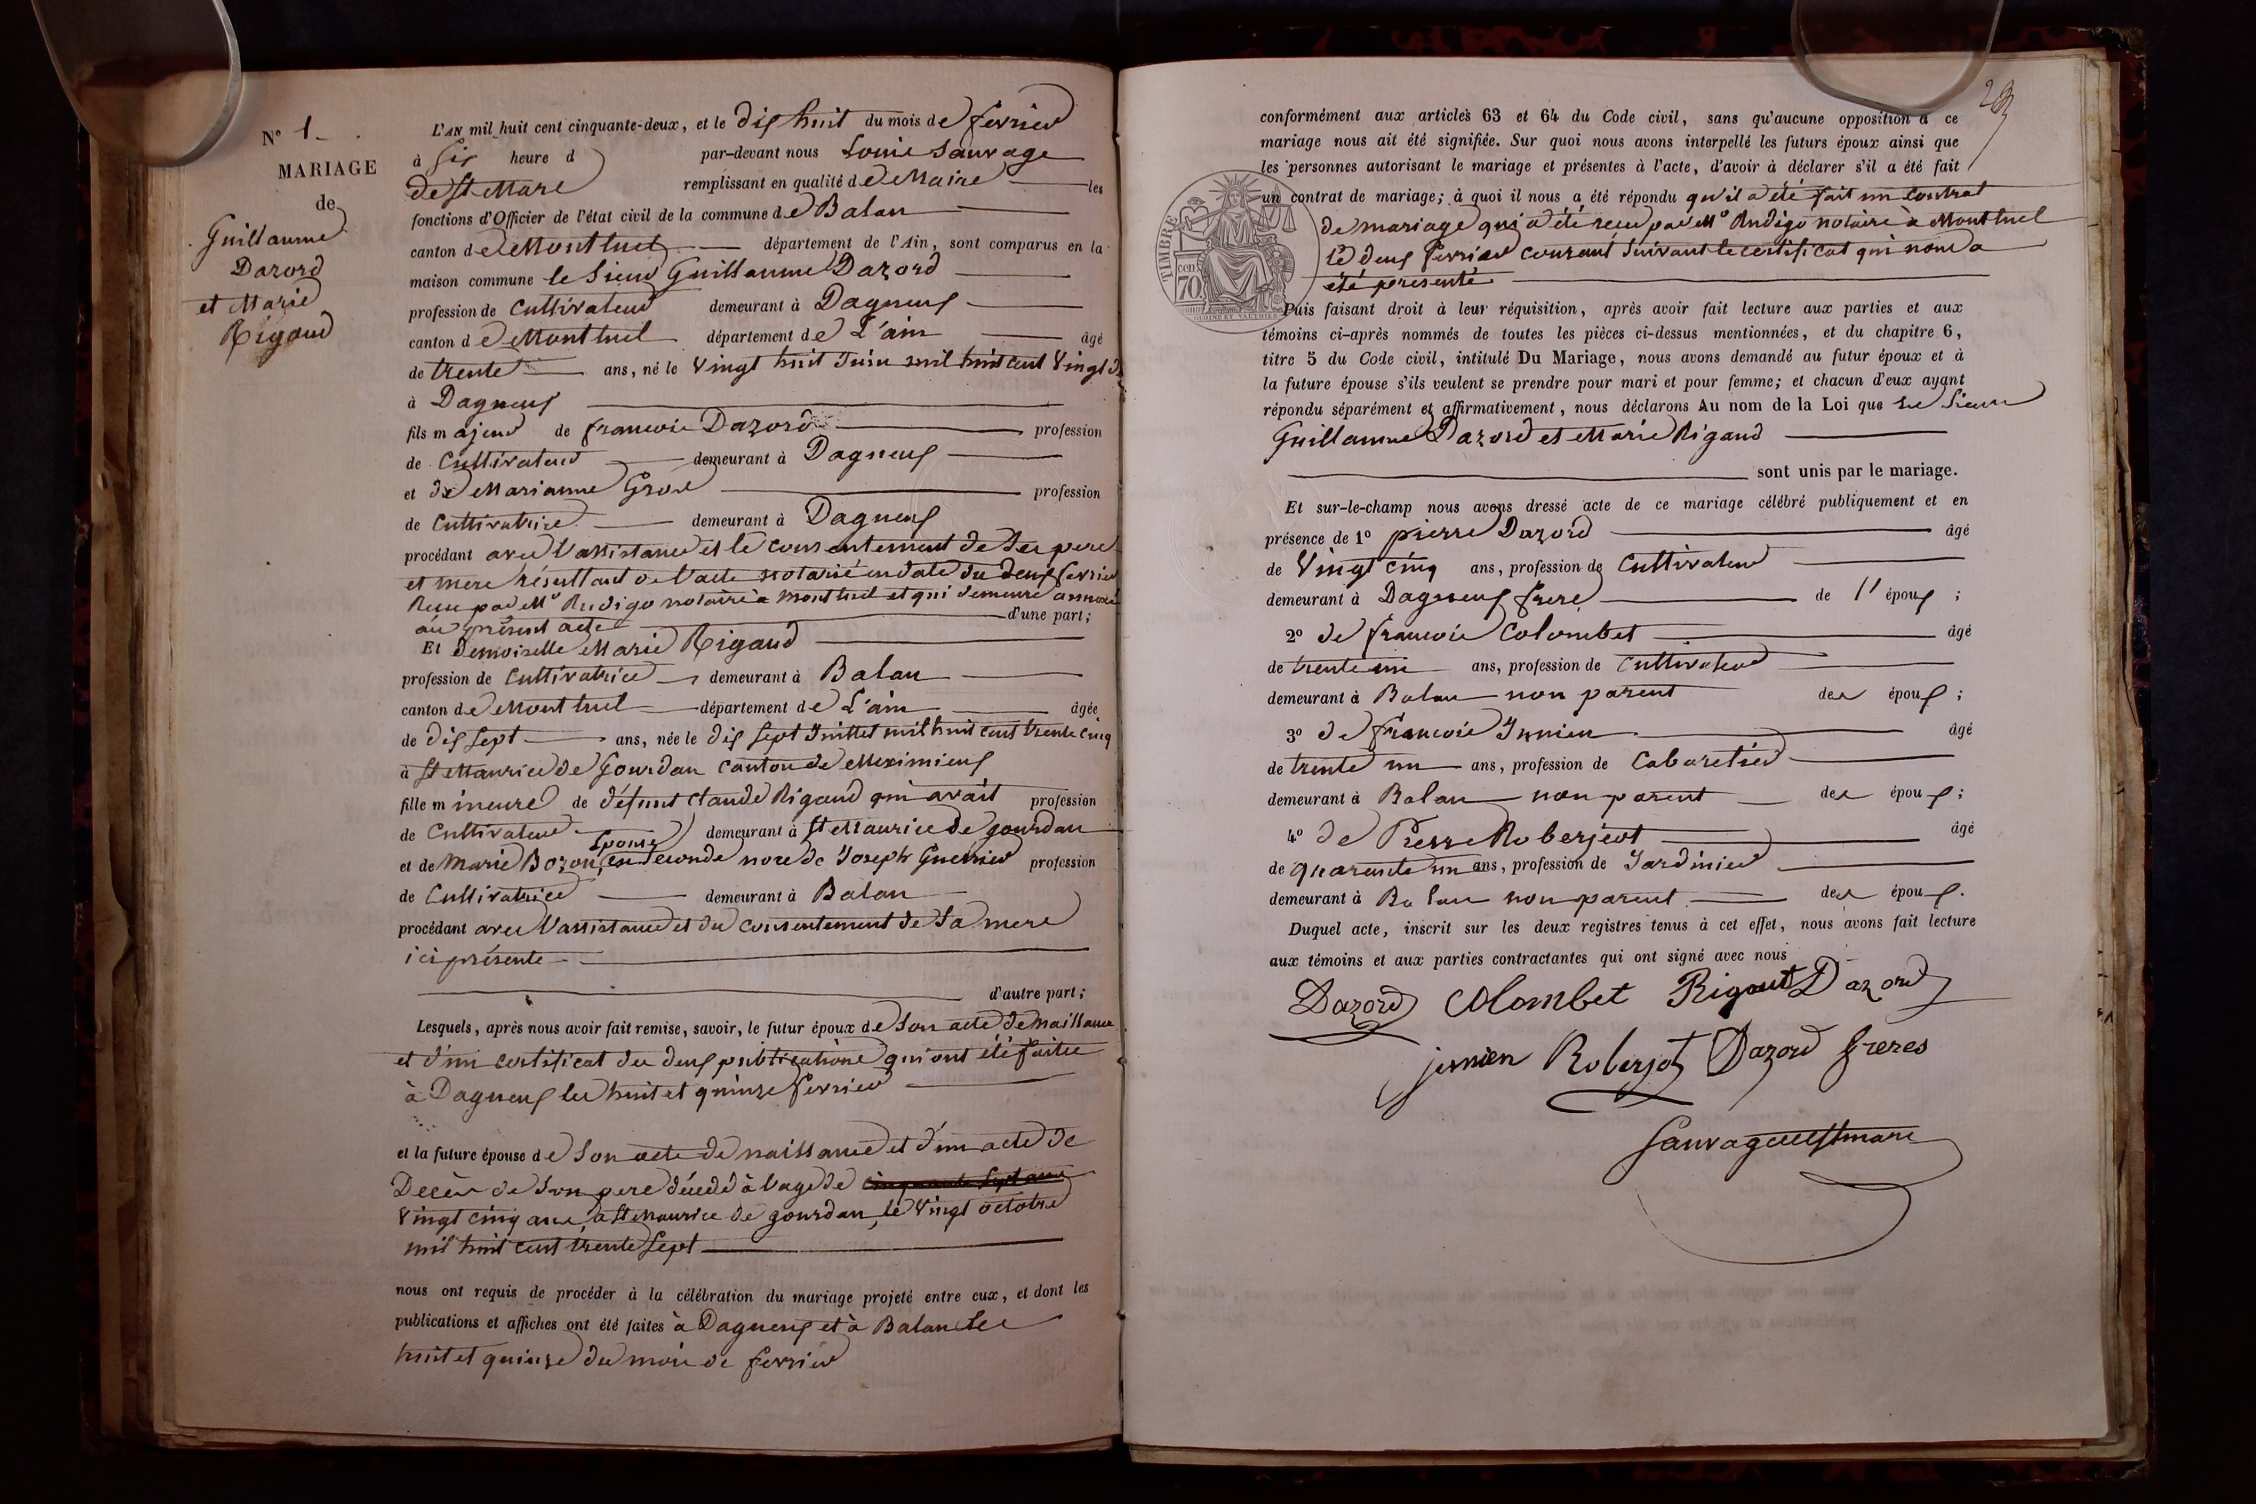 N° 1
MARIAGE
de
Guillaume
Dazord
et Marie
Rigaud
L'AN mil huit cent cinquante-deux, et le dix huit du mois de fevrier
à six heure d par-devant nous Louis Sauvage
de St Marc remplissant en qualité de Maire les
fonctions d'Officier de l'état civil de la commune de Balan
canton de Montluel département de l'Ain, sont comparus en la
maison commune le Sieur Guillaume Dazord
profession de Cultivateur demeurant à Dagneux
canton de Montluel département de L'ain âgé
de trente ans, né le Vingt huit Juin mil huit cent Vingt
à Dagneux
fils majeur de francois Dazord profession
de Cultivateur demeurant à Dagneux
et de Marianne Gros profession
de Cultivatrice demeurant à Dagneux
procédant avec l'assistance et le consentement de ses pere
et mere résultant de l'acte notarié en date du deux fevrier
Recu par Me Rudigo notaire à montluel et qui demeure annexé
au présent acte d'une part;
Et demoiselle Marie Rigaud
profession de Cultivatrice demeurant à Balan
canton de Montluel département de L'ain âgée
de dix sept ans, née le dix sept Juillet mil huit cent trente cinq
à St Maurice de Gourdan Canton de Meximieux
fille mineure de défunt Claude Rigaud qui avait profession
de Cultivateur demeurant à St Maurice de gourdan
épouse
et de Marie Bozon, en seconde noce de Joseph Guerrier profession
de Cultivatrice demeurant à Balan
procédant avec l'assistance et du consentement de Sa mere
ici présente
d'autre part;
Lesquels, après nous avoir fait remise, savoir, le futur époux de Son acte de naissance
et d'un certificat des deux publications qui ont été faites
à Dagneux les huit et quinze fevrier
et la future épouse de Son acte de naissance et d'un acte de
Décès de Son pere décédé à l'age de cinquante sept ans
Vingt cinq ans, à St Maurice de gourdan, le Vingt octobre
mil huit cent trente Sept
nous ont requis de procéder à la célébration du mariage projeté entre eux, et dont les
publications et affiches ont été faites à Dagneux et à Balan les
huit et quinze du mois de fevrier
conformément aux articles 63 et 64 du Code civil, sans qu'aucune opposition à ce
mariage nous ait été signifiée. Sur quoi nous avons interpellé les futurs époux ainsi que
les personnes autorisant le mariage et présentes à l'acte, d'avoir à déclarer s'il a été fait
un contrat de mariage; à quoi il nous a été répondu qu'il a été fait un Contrat
de mariage qui a été recu par Me Rudigo notaire à Montluel
le deux fevrier courant Suivant le certificat qui nous a
été présenté
TIMBRE
cen. 70.
Puis faisant droit à leur réquisition, après avoir fait lecture aux parties et aux
témoins ci-après nommés de toutes les pièces ci-dessus mentionnées, et du chapitre 6,
titre 5 du Code civil, intitulé Du Mariage, nous avons demandé au futur époux et à
la future épouse s'ils veulent se prendre pour mari et pour femme; et chacun d'eux ayant
répondu séparément et affirmativement, nous déclarons Au nom de la Loi que le Sieur
Guillaume Dazord et Marie Rigaud
sont unis par le mariage.
Et sur-le-champ nous avons dressé acte de ce mariage célébré publiquement et en
présence de 1° pierre Dazord âgé
de Vingt cinq ans, profession de Cultivateur
demeurant à Dagneux frere de l'époux;
2° de francois Colombet âgé
de trente un ans, profession de Cultivateur
demeurant à Balan non parent des époux;
3° de francois Junien âgé
de trente un ans, profession de Cabaretier
demeurant à Balan non parent des époux;
4° de Pierre Roberjeot âgé
de quarante un ans, profession de Jardinier
demeurant à Balan non parent des époux.
Duquel acte, inscrit sur les deux registres tenus à cet effet, nous avons fait lecture
aux témoins et aux parties contractantes qui ont signé avec nous
Dazord Colombet Rigaut Dazord
junien Roberjot Dazord freres
Sauvage de St marc